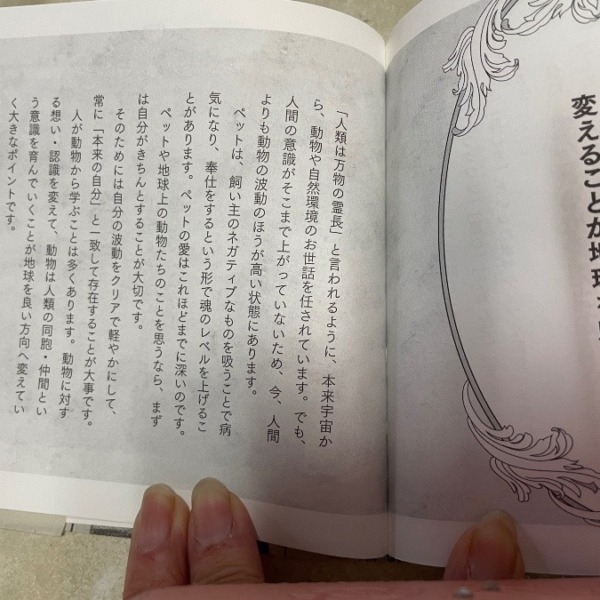 変えることが地球を
「人類は万物の霊長」と言われるように、本来宇宙か
ら、動物や自然環境のお世話を任されています。でも、
人間の意識がそこまで上がっていないため、今、人間
よりも動物の波動のほうが高い状態にあります。
ペットは、飼い主のネガティブなものを吸うことで病
気になり、奉仕をするという形で魂のレベルを上げるこ
とがあります。ペットの愛はこれほどまでに深いのです。
ペットや地球上の動物たちのことを思うなら、まず
は自分がきちんとすることが大切です。
そのためには自分の波動をクリアで軽やかにして、
常に「本来の自分」と一致して存在することが大事です。
人が動物から学ぶことは多くあります。動物に対す
る想い・認識を変えて、動物は人類の同胞・仲間とい
う意識を育んでいくことが地球を良い方向へ変えてい
く大きなポイントです。